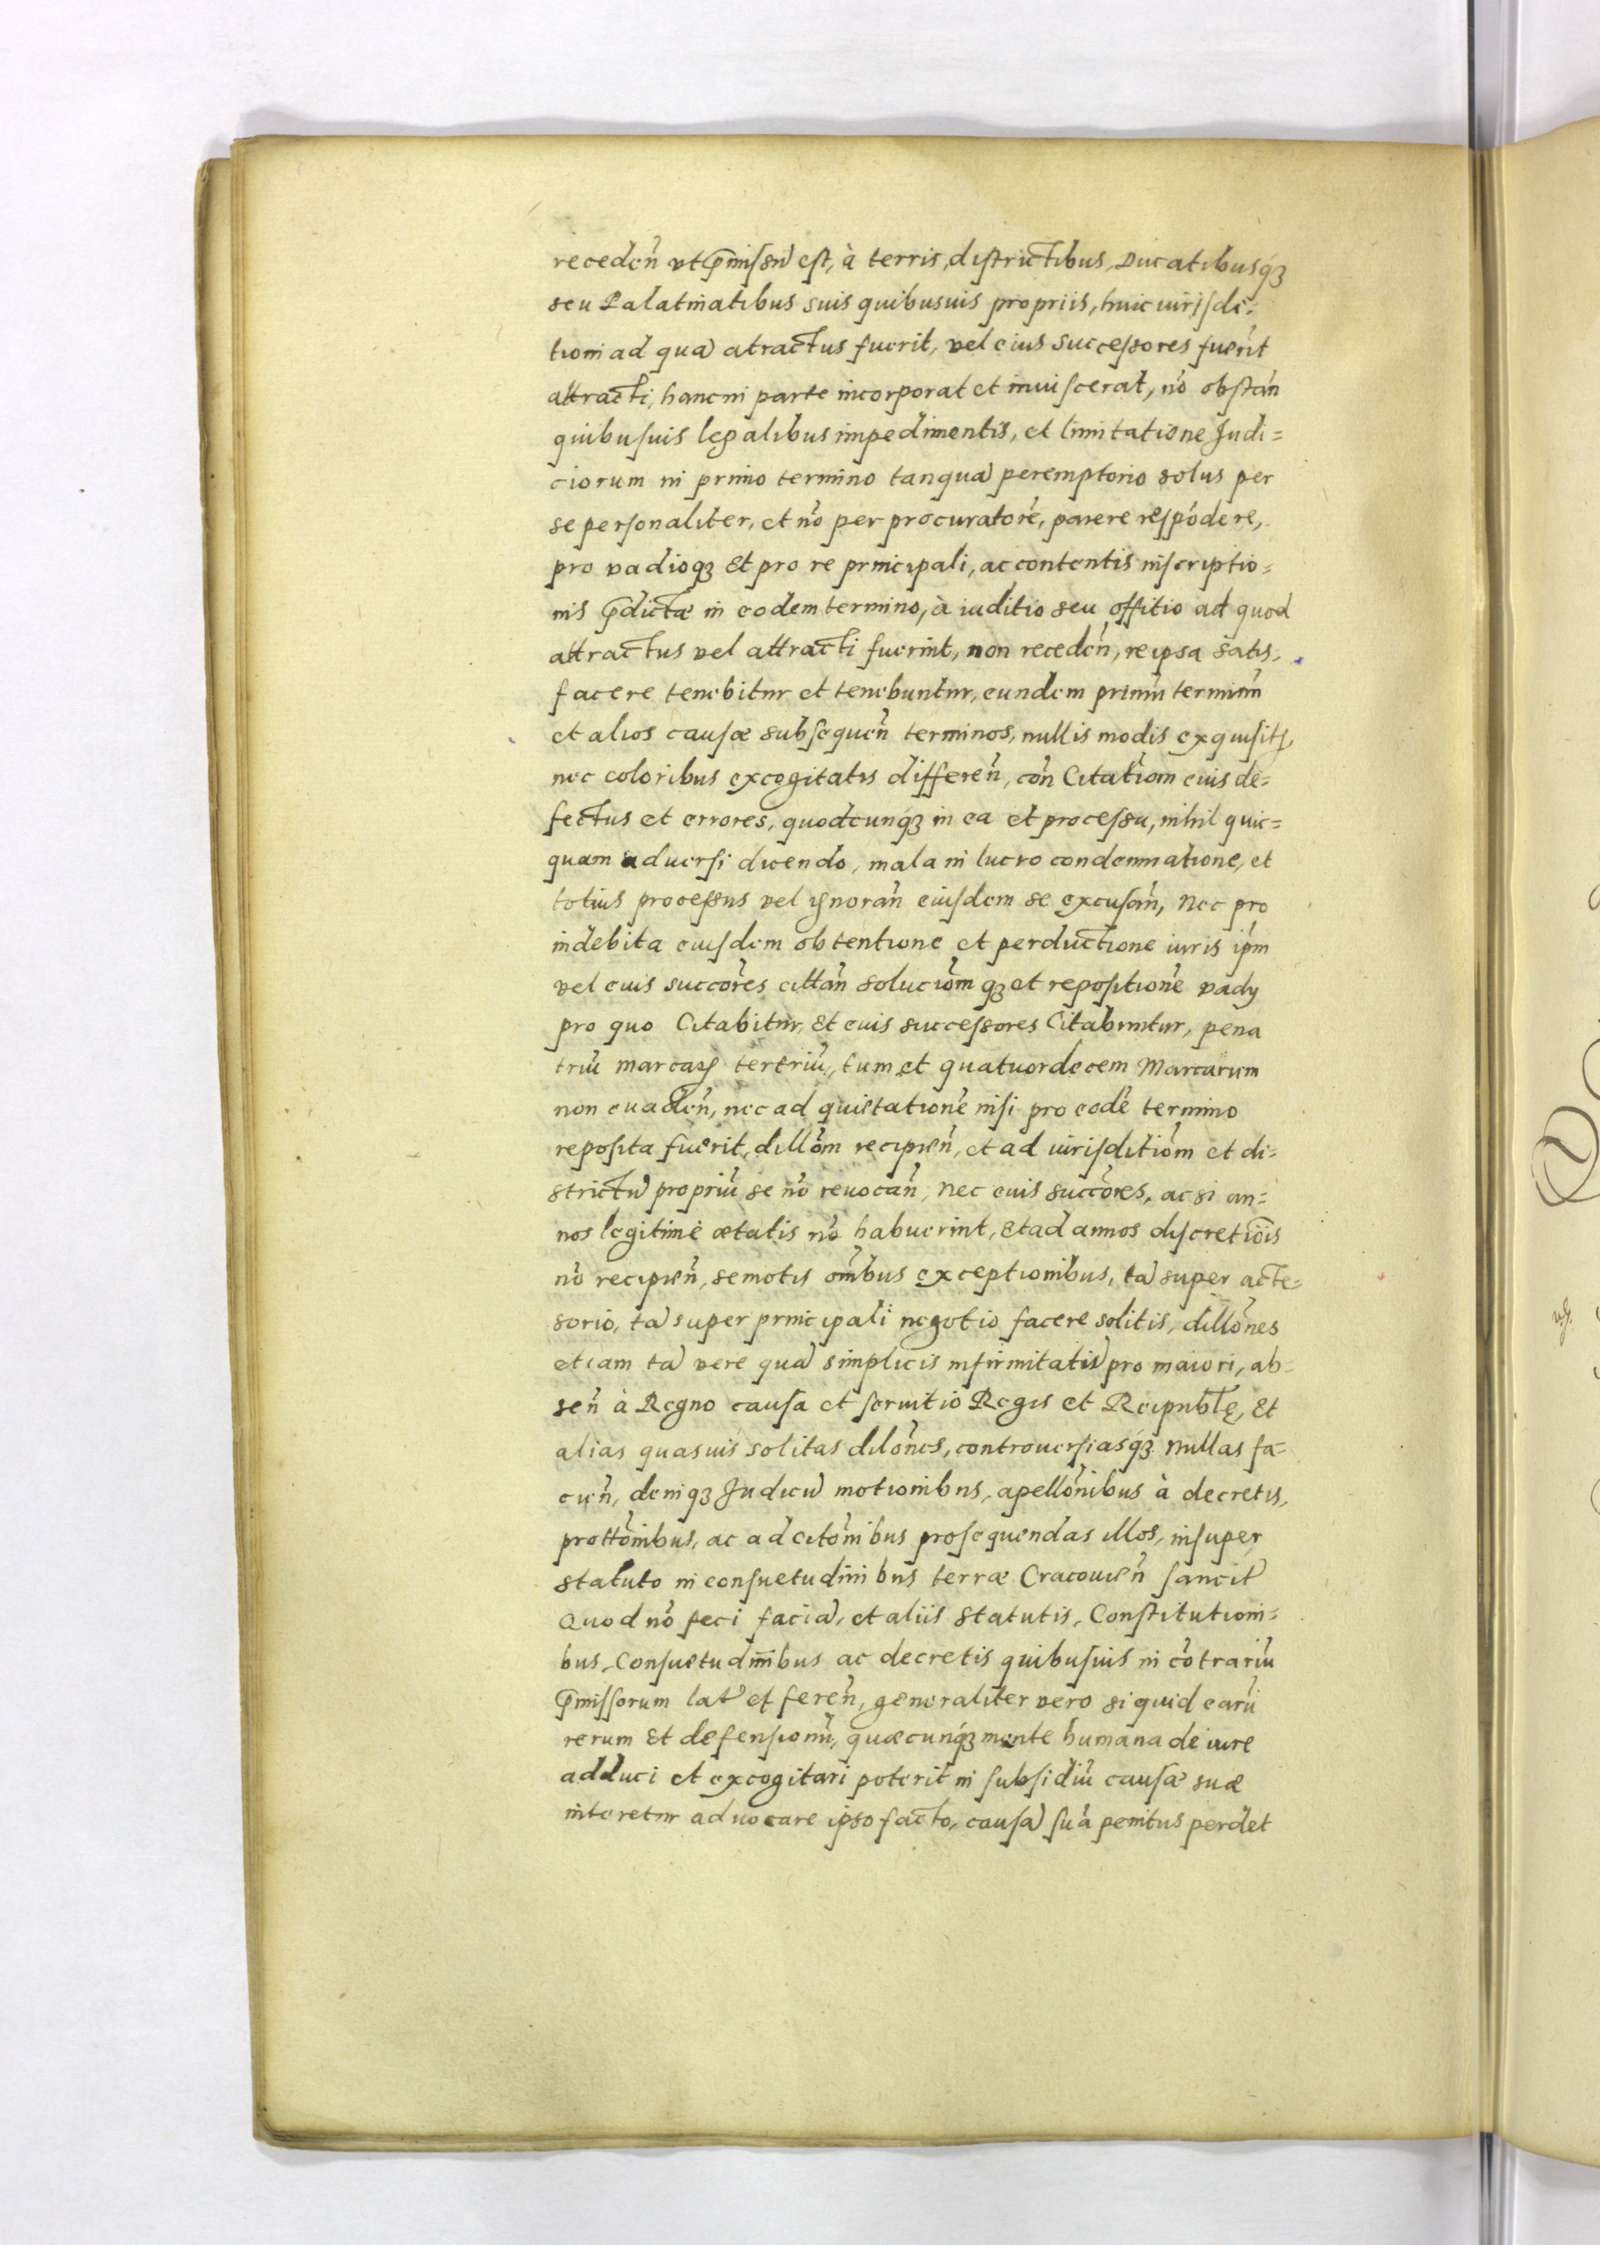 receden̄ vt p̄missũ est, à terris, districtibus, Ducatibusq́ꝫ
seu Palatinatibus suis quibusuis propriis, huic iurisdi=
tioni ad quã atractus fuerit, vel eius successores fuerīt
attracti, hanc in parte incorporat et inuiscerat, nō obstan̄
quibusuis legalibus impedimentis, et limitatione Judi=
ciorum in primo termino tanquã peremptorio solus per
se personaliter, et nō per procuratorē, parere respōdere,
pro vadioqꝫ Et pro re principali, ac contentis inscriptio=
nis p̄dictæ in eodem termino, à iuditio seu offitio ad quod
attractus vel attracti fuerint, non receden̄, reipsa satis,
facere tenebitur et tenebuntur, eundem primū terminū
et alios causæ subsequen̄ terminos, nullis modis exquisitis,
nec coloribus excogitatis differen̄, con̄ Citatiom̄ eius de=
fectus et errores, quodcunq́ꝫ in ea et processu, nihil quic=
quam aduersi dicendo, mala in lucro condemnatione, et
totius processus vel ignoran̄ eiusdem se excusan̄, Nec pro
indebita eiusdem obtentione et perductione iuris ipm̄
vel eius succōres cittan̄ soluciom̄ qꝫ et repositionē vadÿ
pro quo Citabitur, Et eius successores Citabuntur, pena
triū marcaꝝ tertriū, tum et quatuordecem Marcarum
non euaden̄, nec ad quietationē nisi pro eodē termino
reposita fuerit, dillōm recipien̄, et ad iurisditiōm et di=
strictũ propriū se nō reuocan̄, Nec eius succōres, ac si an=
nos legitimè ætatis nō habuerint, Et ad annos discretiōis
nō recipien̄, semotis om̄bus exceptionibus, tã super acte=
sorio, tã super principali negotio facere solitis, dillōnes
etiam tã vere quã simplicis infirmitatis pro maiori, ab=
sen̄ à Regno causa et seruitio Regis et Reipublę, Et
alias quasuis solitas dilōnes, controuersiasq́ꝫ nullas fa=
cien̄, deniqꝫ Judicũ motionibus, apellōnibus à decretis,
prottōnibus, ac ad citōnibus prosequendas illos, insuper
statuto in consuetudinibus terræ Cracouien̄ sancit̄
Quod nō feci faciã, et aliis Statutis, Constitutioni=
bus, Consuetudinibus ac decretis quibusuis in cōtrariū
p̄missorum lat̄ et feren̄, generaliter vero si quid earū
rerum Et defensionū, quæcunq́ꝫ mente humana de iure
adduci et excogitari poterit in subsidiū causæ suæ
niteretur aduocare ipso facto, causã suā penitus perdet